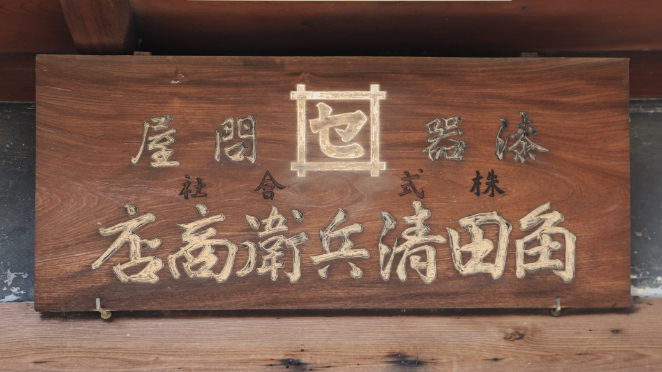 セ
漆器問屋
株式會社
角田清兵衛商店